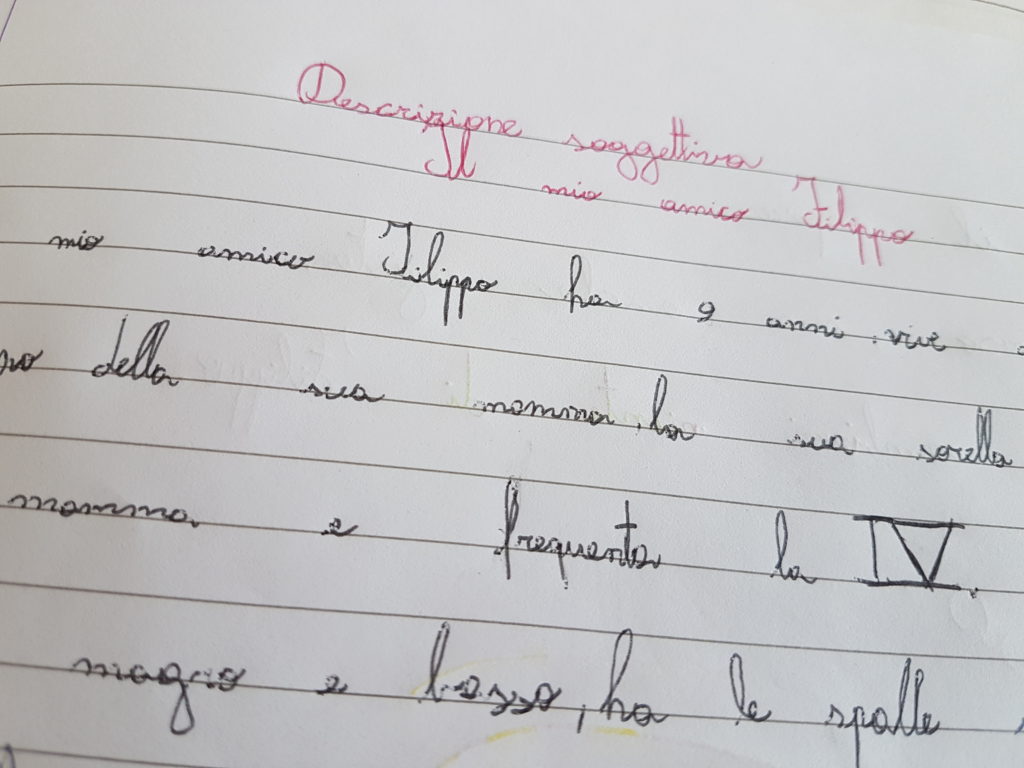 Descrizione soggettiva
Il mio amico Filippo
mio amico Filippo ha 9 anni, vive
della sua nonna, la sua sorella
mamma e frequenta la IV.
magro e basso, ha le spalle